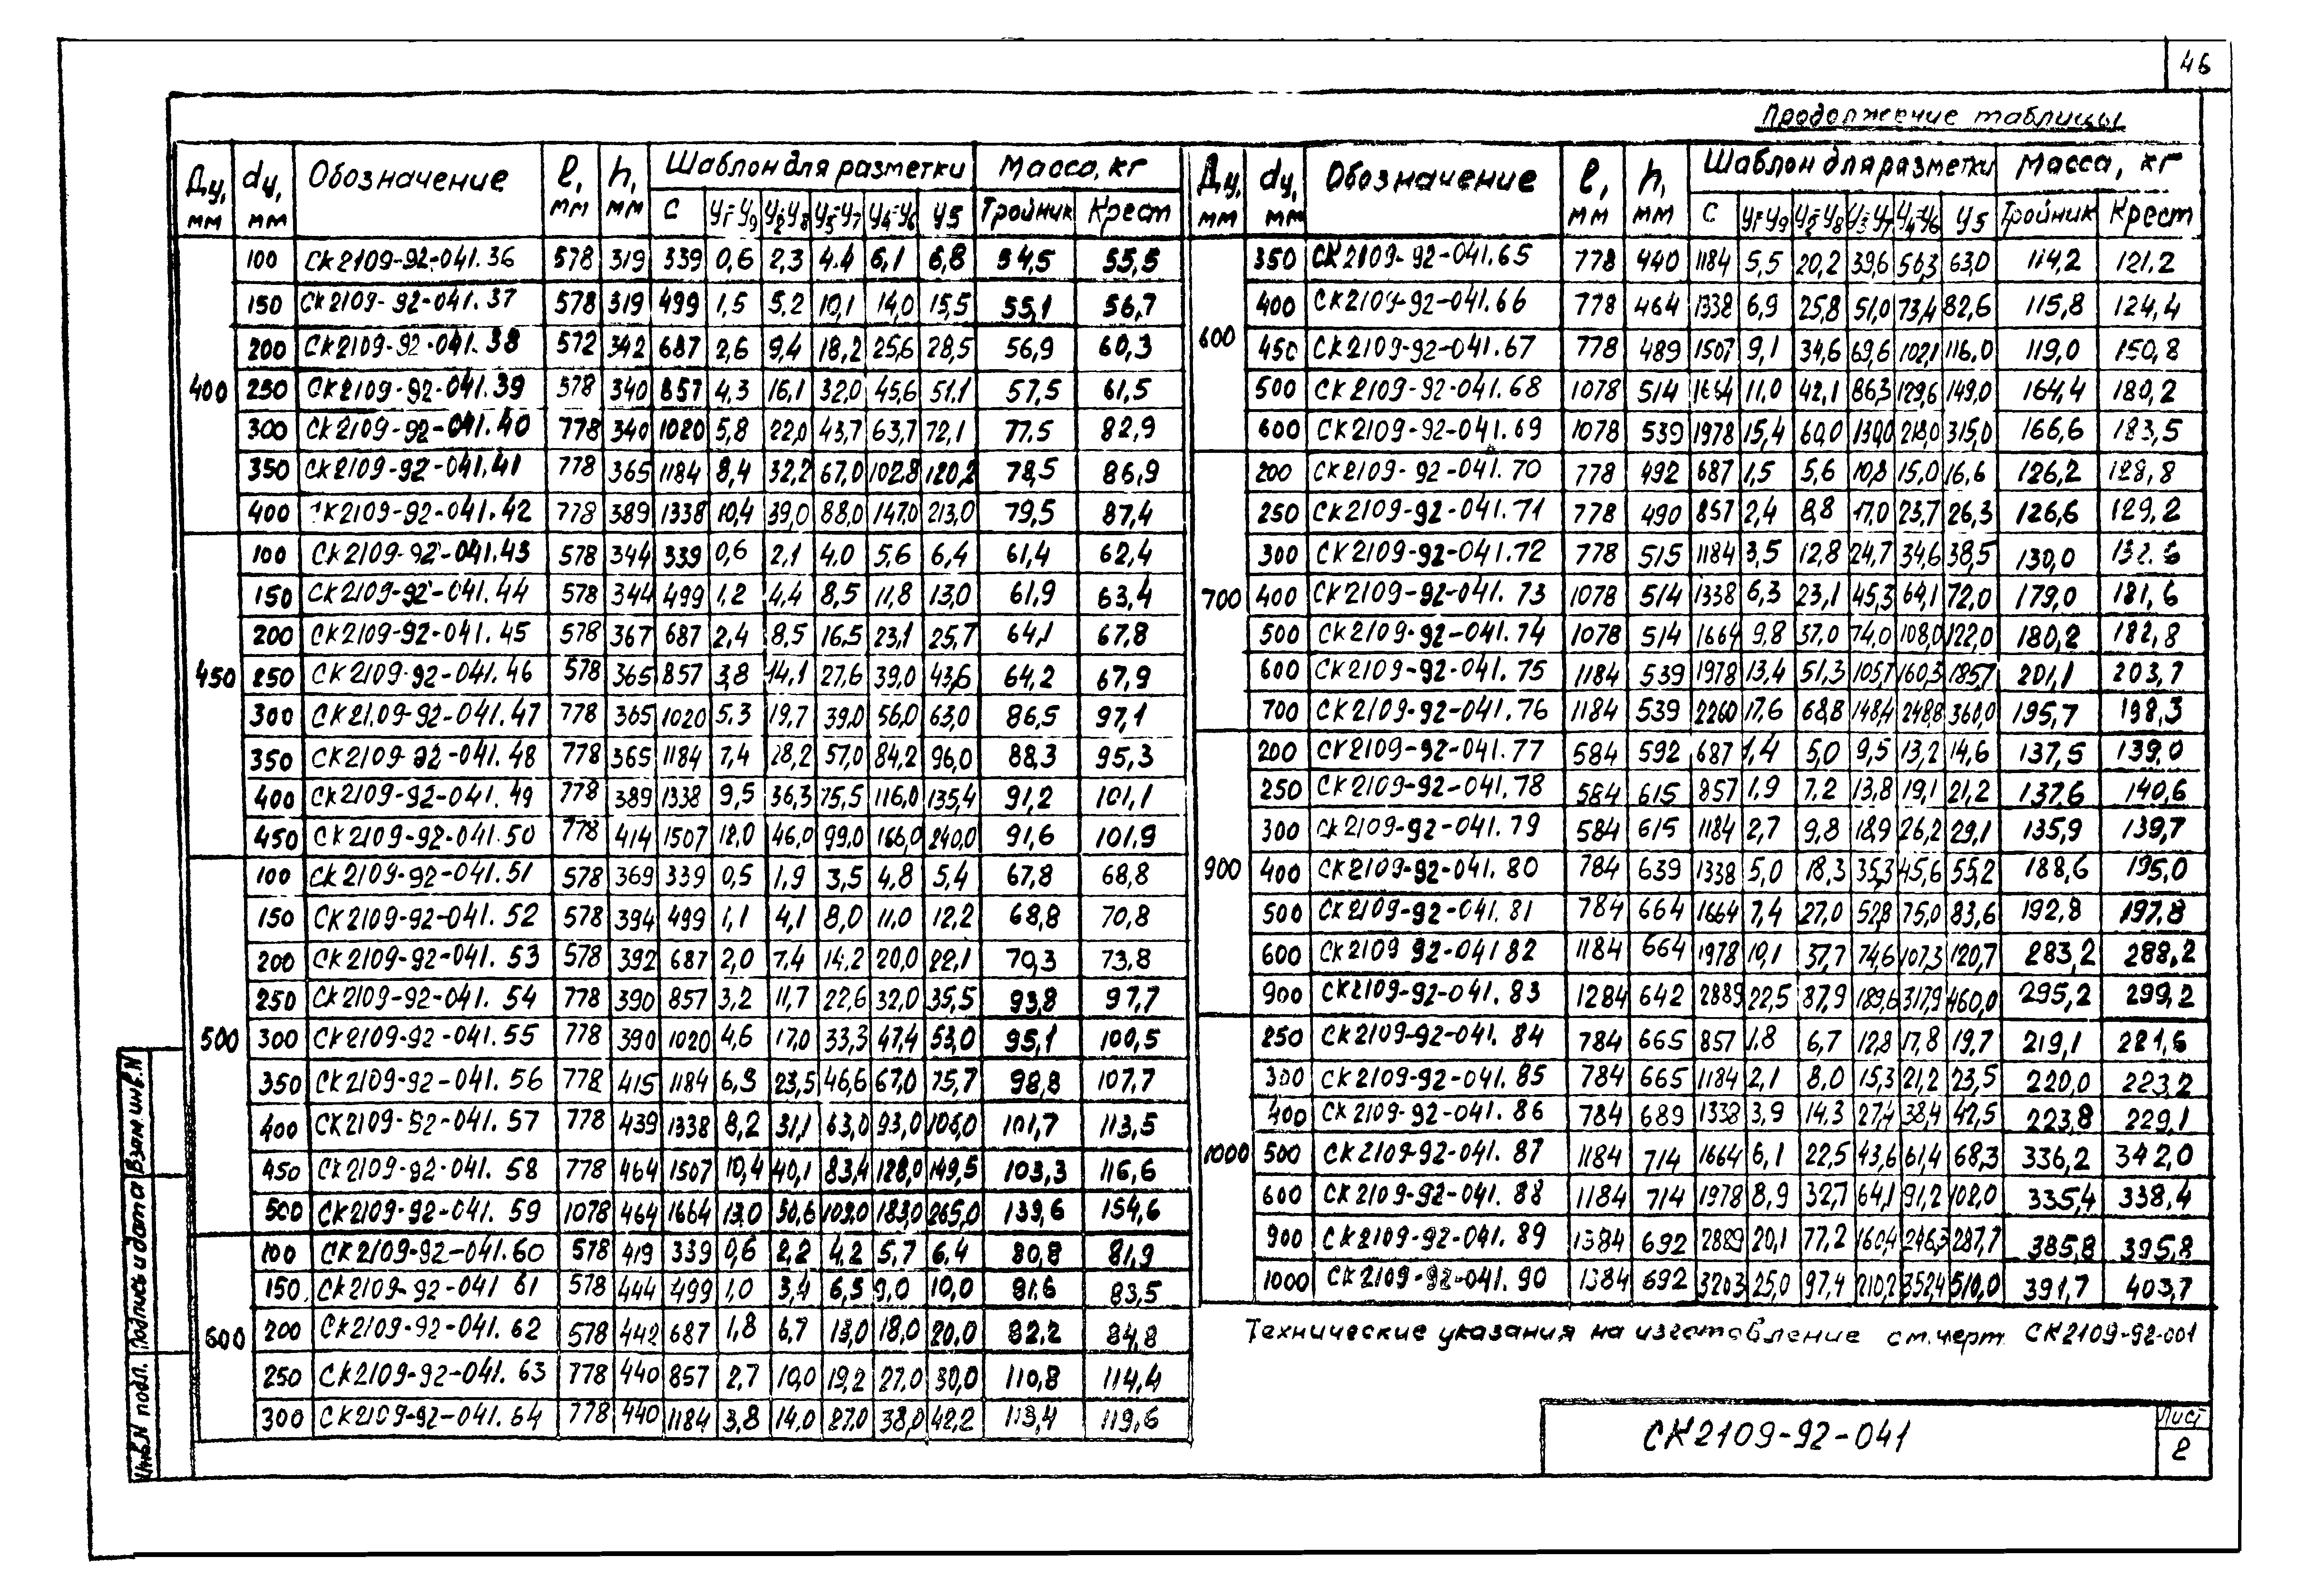 46
Продолжение таблицы
Ду, мм dу, мм Обозначение l, мм h, мм Шаблон для разметки Масса, кг
С У1=У9 У2=У8 У3=У7 У4=У6 У5 Тройник Крест
400
100 СК2109-92-041.36 578 319 339 0,6 2,3 4.4 6,1 6,8 54,5 55,5
150 СК2109-92-041.37 578 319 499 1,5 5,2 10,1 14,0 15,5 55,1 56,7
200 СК2109-92-041.38 572 342 687 2,6 9,4 18,2 25,6 28,5 56,9 60,3
250 СК2109-92-041.39 578 340 857 4,3 16,1 32,0 45,6 51.1 57,5 61,5
300 СК2109-92-041.40 778 340 1020 5,8 22,0 43,7 63,7 72,1 77.5 82,9
350 СК2109-92-041.41 778 365 1184 8,4 32,2 67,0 102,8 120,2 78,5 86,9
400 СК2109-92-041.42 778 389 1338 10,4 39,0 88,0 147,0 213,0 79,5 87,4
450
100 СК2109-92-041.43 578 344 339 0,6 2,1 4.0 5,6 6,4 61,4 62,4
150 СК2109-92-041.44 578 344 499 1,2 4,4 8,5 11,8 13,0 61,9 63,4
200 СК2109-92-041.45 578 367 687 2,4 8,5 16,5 23,1 25,7 64,1 67,8
250 СК2109-92-041.46 578 365 857 3,8 14,1 27,6 39,0 43,6 64,2 67,9
300 СК2109-92-041.47 778 365 1020 5,3 19,7 39,0 56,0 63,0 86,5 97,1
350 СК2109-92-041.48 778 365 1184 7,4 28,2 57,0 84,2 96,0 88,3 95,3
400 СК2109-92-041.49 778 389 1338 9,5 36,3 75,5 116,0 135,4 91,2 101,1
450 СК2109-92-041.50 778 414 1507 12,0 46,0 99,0 166,0 240,0 91,6 101,9
500
100 СК2109-92-041.51 578 369 339 0,5 1,9 3,5 4,8 5,4 67,8 68,8
150 СК2109-92-041.52 578 394 499 1,1 4,1 8,0 11,0 12,2 68,8 70,8
200 СК2109-92-041.53 578 392 687 2,0 7,4 14,2 20,0 22,1 70,3 73,8
250 СК2109-92-041.54 778 390 857 3,2 11,7 22,6 32,0 35,5 93,8 97,7
300 СК2109-92-041.55 778 390 1020 4,6 17,0 33,3 47,4 53,0 95,1 100,5
350 СК2109-92-041.56 778 415 1184 6,3 23,5 46,6 67,0 75,7 98,8 107,7
400 СК2109-92-041.57 778 439 1338 8,2 31,1 63,0 93,0 106,0 101,7 113,5
450 СК2109-92-041.58 778 464 1507 10,4 40,1 83,4 128,0 149,5 103,3 116,6
500 СК2109-92-041.59 1078 464 1664 13,0 50,6 109,0 183,0 265,0 139,6 154,6
600
100 СК2109-92-041.60 578 419 339 0,6 2,2 4,2 5,7 6,4 80,8 81,9
150 СК2109-92-041 61 578 444 499 1,0 3,4 6,5 9,0 10,0 81,6 83,5
200 СК2109-92-041.62 578 442 687 1,8 6,7 13,0 18,0 20,0 82,2 84,8
250 СК2109-92-041.63 778 440 857 2,7 10,0 19,2 27,0 30,0 110,8 114,4
300 СК2109-92-041.64 778 440 1184 3,8 14,0 27,0 38,0 42,2 113,4 119,6
Ду, мм dу, мм Обозначение l, мм h, мм Шаблон для разметки Масса, кг
С У1=У9 У2=У8 У3=У7 У4=У6 У5 Тройник Крест
600
350 СК2109-92-041.65 778 440 1184 5,5 20,2 39,6 56,3 63,0 114,2 121,2
400 СК2109-92-041.66 778 464 1338 6,9 25,8 51,0 73,4 82,6 115,8 124,4
450 СК2109-92-041.67 778 489 1507 9,1 34,6 69,6 102,1 116,0 119,0 150,8
500 СК2109-92-041.68 1078 514 1664 11,0 42,1 86,3 129,6 149,0 164,4 180,2
600 СК2109-92-041.69 1078 539 1978 15,4 60,0 130,0 218,0 315,0 166,6 183,5
700
200 СК2109-92-041.70 778 492 687 1,5 5,6 10,8 15,0 16,6 126,2 128,8
250 СК2109-92-041.71 778 490 857 2,4 8,8 17,0 23,7 26,3 126,6 129,2
300 СК2109-92-041.72 778 515 1184 3,5 12,8 24,7 34,6 38,5 130,0 132.6
400 СК2109-92-041.73 1078 514 1338 6,3 23,1 45,3 64,1 72,0 179,0 181,6
500 СК2109-92-041.74 1078 514 1664 9,8 37,0 74,0 108,0 122,0 180,2 182,8
600 СК2109-92-041.75 1184 539 1978 13,4 51,3 105,7 160,3 185,7 201,1 203,7
700 СК2109-92-041.76 1184 539 2260 17,6 68,8 148,4 248,8 360,0 195,7 198,3
900
200 СК2109-92-041.77 584 592 687 1,4 5,0 9,5 13,2 14,6 137,5 139,0
250 СК2109-92-041.78 584 615 857 1,9 7,2 13,8 19,1 21,2 137,6 140,6
300 СК2109-92-041.79 584 615 1184 2,7 9,8 18,9 26,2 29,1 135,9 139,7
400 СК2109-92-041.80 784 639 1338 5,0 18,3 35,3 45,6 55,2 188,6 195,0
500 СК2109-92-041.81 784 664 1664 7,4 27,0 52,8 75,0 83,6 192,8 197,8
600 СК2109 92-041 82 1184 664 1978 10,1 37,7 74,6 107,3 120,7 283,2 288,2
900 СК2109-92-041.83 1284 642 2889 22,5 87,9 189,6 317,9 460,0 295,2 299,2
1000
250 СК2109-92-041.84 784 665 857 1,8 6,7 12,8 17,8 19,7 219,1 221,6
300 СК2109-92-041.85 784 665 1184 2,1 8,0 15,3 21,2 23,5 220,0 223,2
400 СК2109-92-041.86 784 689 1338 3,9 14.3 27,4 38,4 42,5 223,8 229,1
500 СК2109-92-041.87 1184 714 1664 6,1 22,5 43,6 61,4 68,3 336,2 342,0
600 СК2109-92-041.88 1184 714 1978 8,9 32,7 64,1 91,2 102,0 335,4 338,4
900 СК2109-92-041.89 1384 692 2889 20,1 77,2 160,4 246,3 287,7 385,8 395,8
1000 СК2109-92-041.90 1384 692 3203 25,0 97,4 210,2 352,4 510,0 391,7 403,7
Технические указания на изготовление см.черт. СК2109-92-001
СК2109-92-041
Лист
2
Взам.инв.N
Подпись и дата
Инв.N подл.